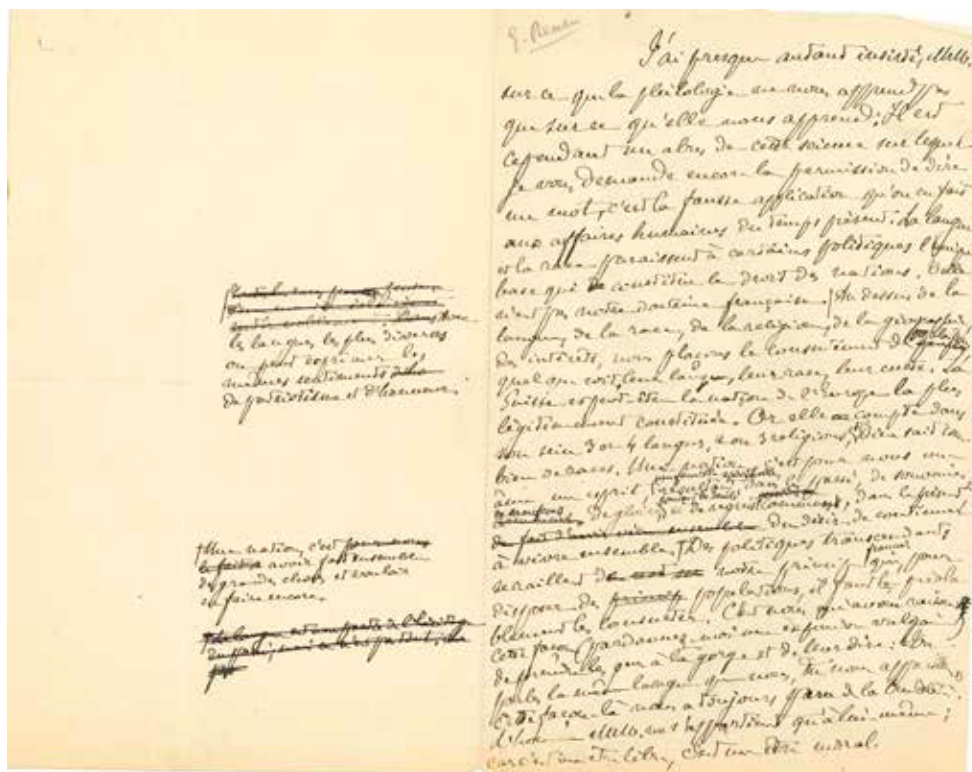 E. Renan
J'ai presque autant insisté, MM.
sur ce que la philologie ne nous apprend pas
que sur ce qu'elle nous apprend. Il est
cependant un abus de cette science sur lequel
je vous demande encore la permission de dire
un mot, c'est la fausse application qu'on en fait
aux affaires humaines du temps présent. La langue
et la race paraissent à certains politiques l'unique
base qui constitue le droit des nations. Telle
n'est pas notre doctrine française. Au dessus de la
langue, de la race, de la religion, de la géographie,
des intérêts, nous plaçons le consentement des
quelque soit leur langue, leur race, leur culte. La
Suisse est peut-être la nation de l'Europe la plus
légitimement constituée. Or elle compte dans
son sein 3 ou 4 langues, 2 ou 3 religions, Dieu sait com-
bien de races. Une nation, c'est pour nous une
âme, un esprit, résultant dans le passé, de souvenirs,
de gloire, de dans le présent
du désir, de continuer
à vivre ensemble. Des politiques transcendants
se raillent de notre principe français que, pour
disposer des populations, il faut les préala-
blement les consulter. C'est nous qui avons raison.
Cette façon (pardonnez-moi une expression vulgaire)
de prendre les gens à la gorge et de leur dire: Tu
parles la même langue que nous, tu nous appartiens
Cette façon-là nous a toujours paru de la
L'homme MM. ne s'appartient qu'à lui-même;
car c'est un être libre, c'est un être moral.
les langues les plus diverses
on peut exprimer les
mêmes sentiments
de patriotisme et d'honneur.
Une nation, c'est pour nous
avoir fait ensemble
de grandes choses et vouloir
en faire encore.